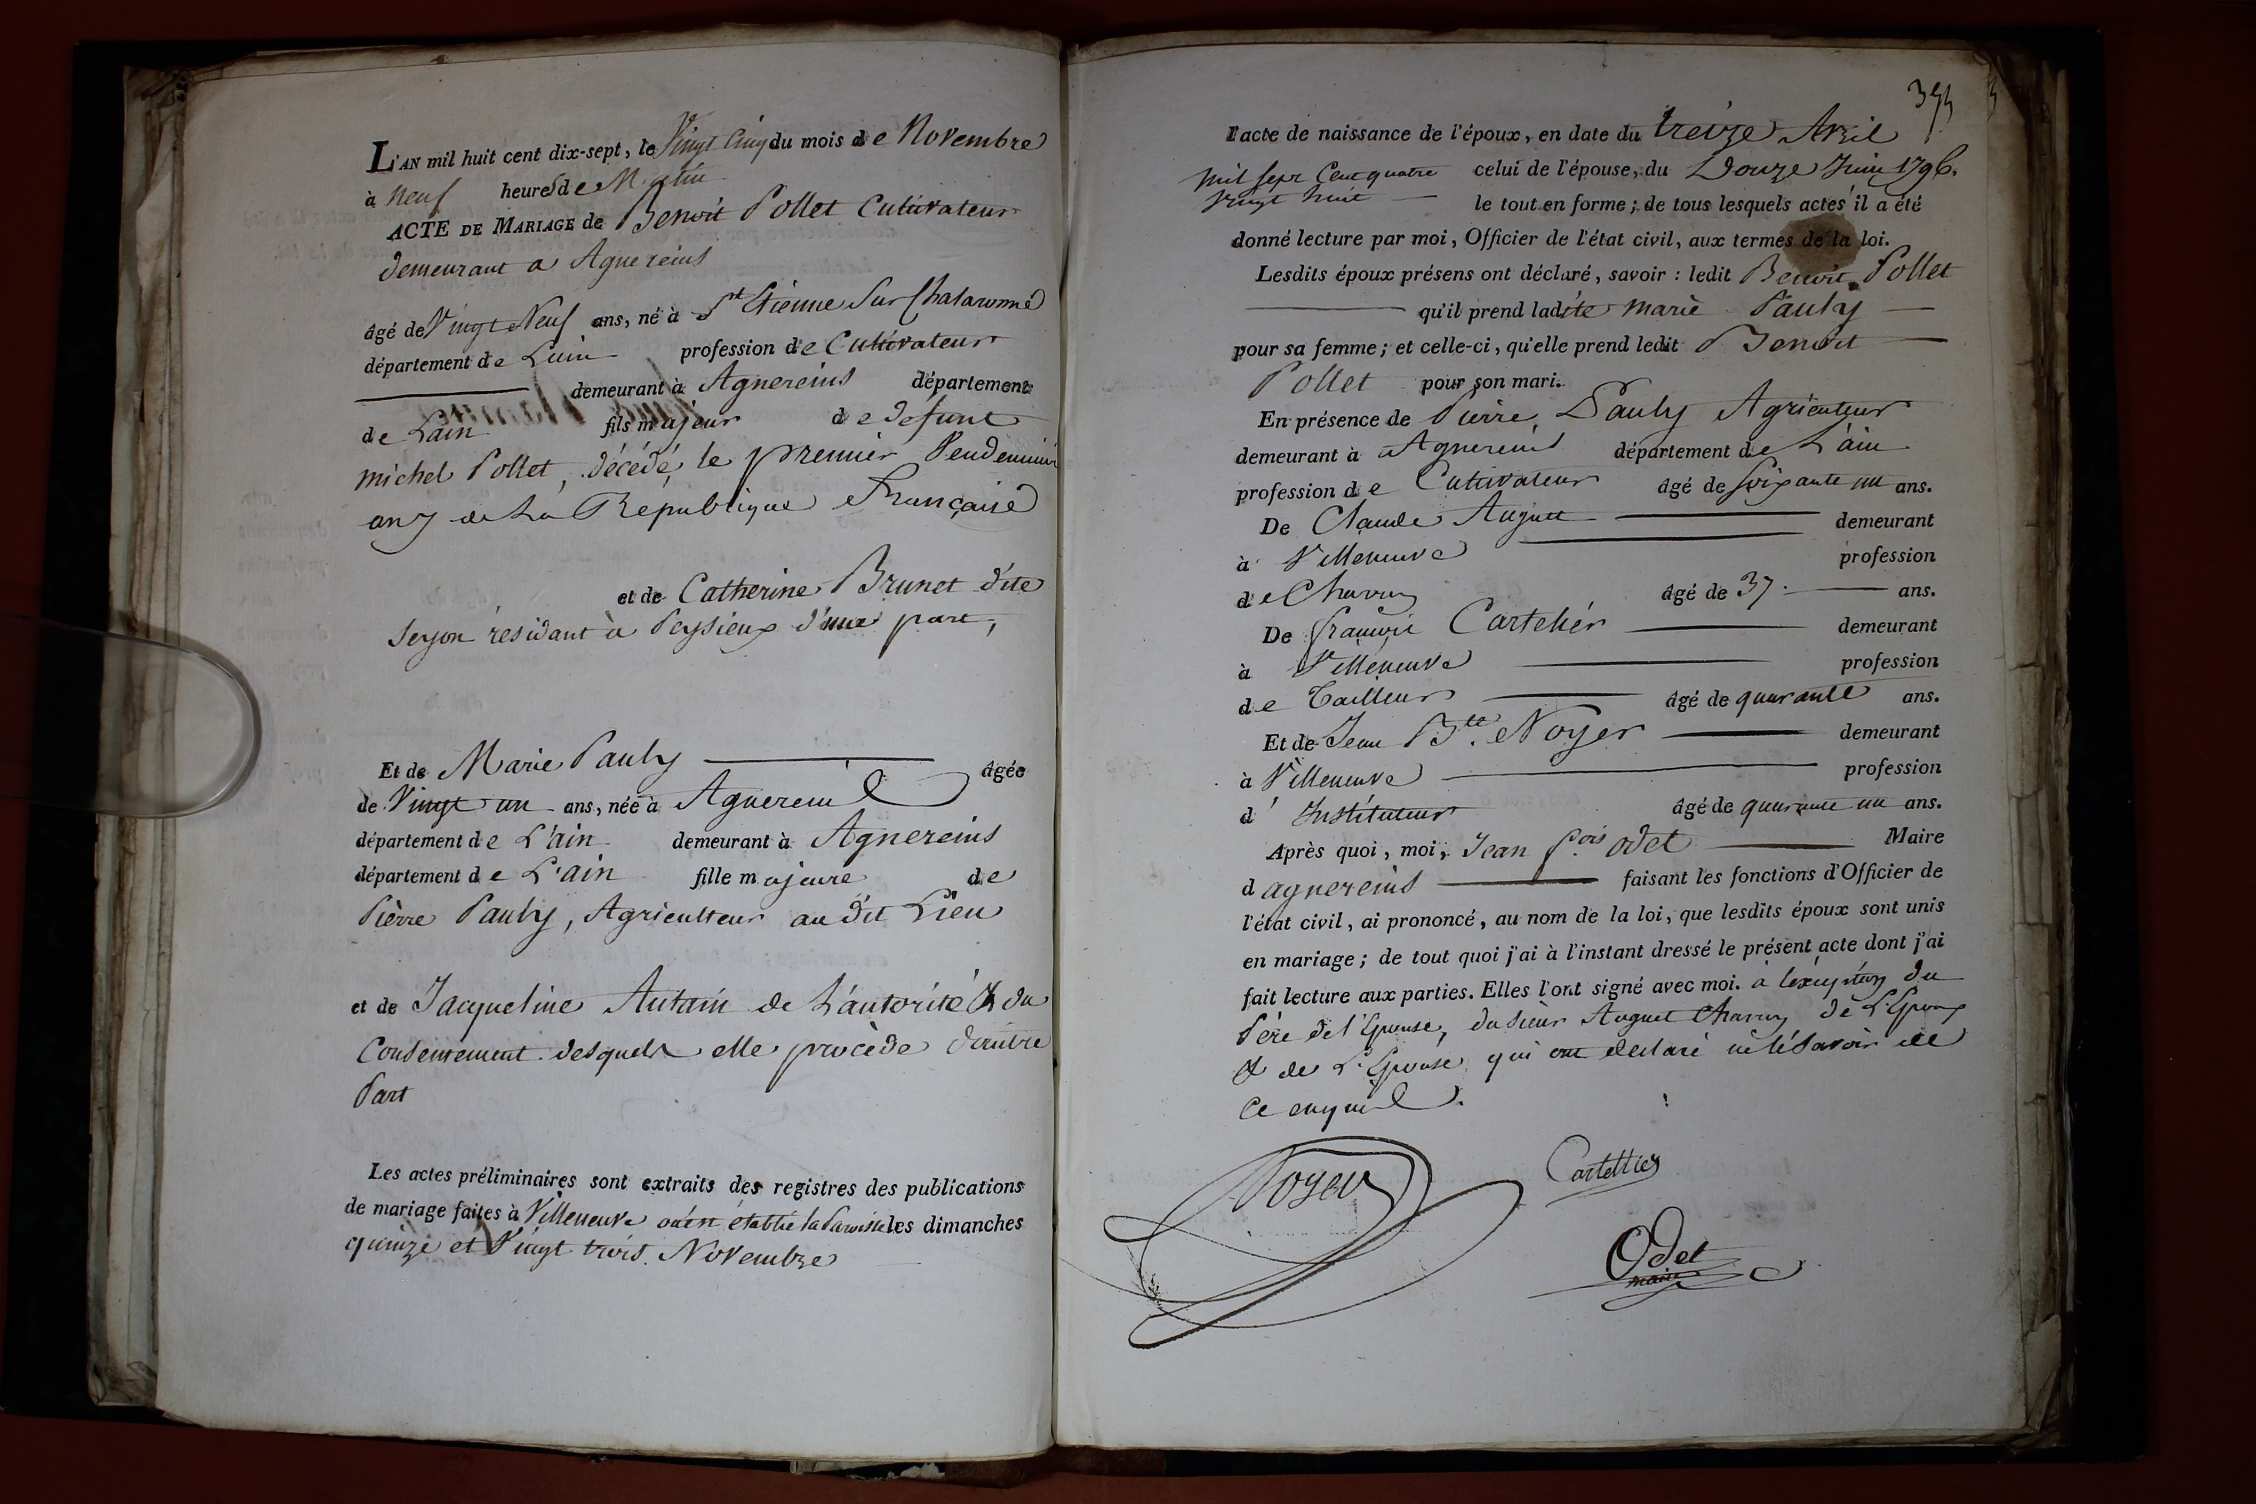 L'AN mil huit cent dix-sept, le Vingt Cinq du mois de Novembre
à Neuf heures de Matin
ACTE DE MARIAGE de Benoit Pollet Cultivateur
demeurant a Agnereins
âgé de Vingt Neuf ans, né à St Etienne Sur Chalaronne
département de Lain profession de Cultivateur
demeurant à Agnereins département
de Lain fils majeur de defunt
michel Pollet, décédé, le premier Vendemiair
an 7 de La République Française
et de Catherine Brunet dite
Seyon résidant à Peysieux d'une part,
Et de Marie Pauly âgée
de Vingt un ans, née à Agnereins
département de L'ain demeurant à Agnereins
département de L'ain fille majeure de
Pièrre Pauly, Agriculteur au dit Lieu
et de Jacqueline Autain de L'autorité & du
Consentement desquels elle procède d'autre
Part
Les actes préliminaires sont extraits des registres des publications
de mariage faites à Villeneuve où est établie la Paroisse les dimanches
quinze et Vingt trois Novembre
393
l'acte de naissance de l'époux, en date du treize Avril
mil sept Cent quatre celui de l'épouse, du Douze Juin 1796.
Vingt huit le tout en forme; de tous lesquels actes il a été
donné lecture par moi, Officier de l'état civil, aux termes de la loi.
Lesdits époux présens ont déclaré, savoir: ledit Benoit Pollet
qu'il prend ladite marie Pauly
pour sa femme; et celle-ci, qu'elle prend ledit Benoit
Pollet pour son mari.
En présence de Pierre Pauly Agriculteur
demeurant à Agnereins département de L'ain
profession de Cultivateur âgé de soixante un ans.
De Claude Auguet demeurant
à Villeneuve profession
de Charron âgé de 37 ans.
De françois Cartelier demeurant
à Villeneuve profession
de Tailleur âgé de quarante ans.
Et de Jean Bte Noyer demeurant
à Villeneuve profession
d' Instituteur âgé de quarante un ans.
Après quoi, moi, Jean f.ois odet Maire
d agnereins faisant les fonctions d'Officier de
l'état civil, ai prononcé, au nom de la loi, que lesdits époux sont unis
en mariage; de tout quoi j'ai à l'instant dressé le présent acte dont j'ai
fait lecture aux parties. Elles l'ont signé avec moi. à l'exception du
Père de l'Epouse, du sieur Auguet Charron, de L'Epoux
& de L'Epouse qui ont déclaré ne le savoir de
ce enquis.
Noyer
Cartellier
Odet
maire